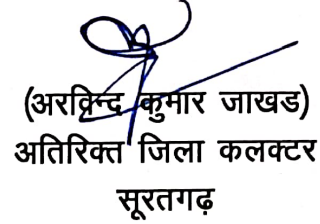 (अरविन्द कुमार जाखड)
अतिरिक्त जिला कलक्टर
सूरतगढ़